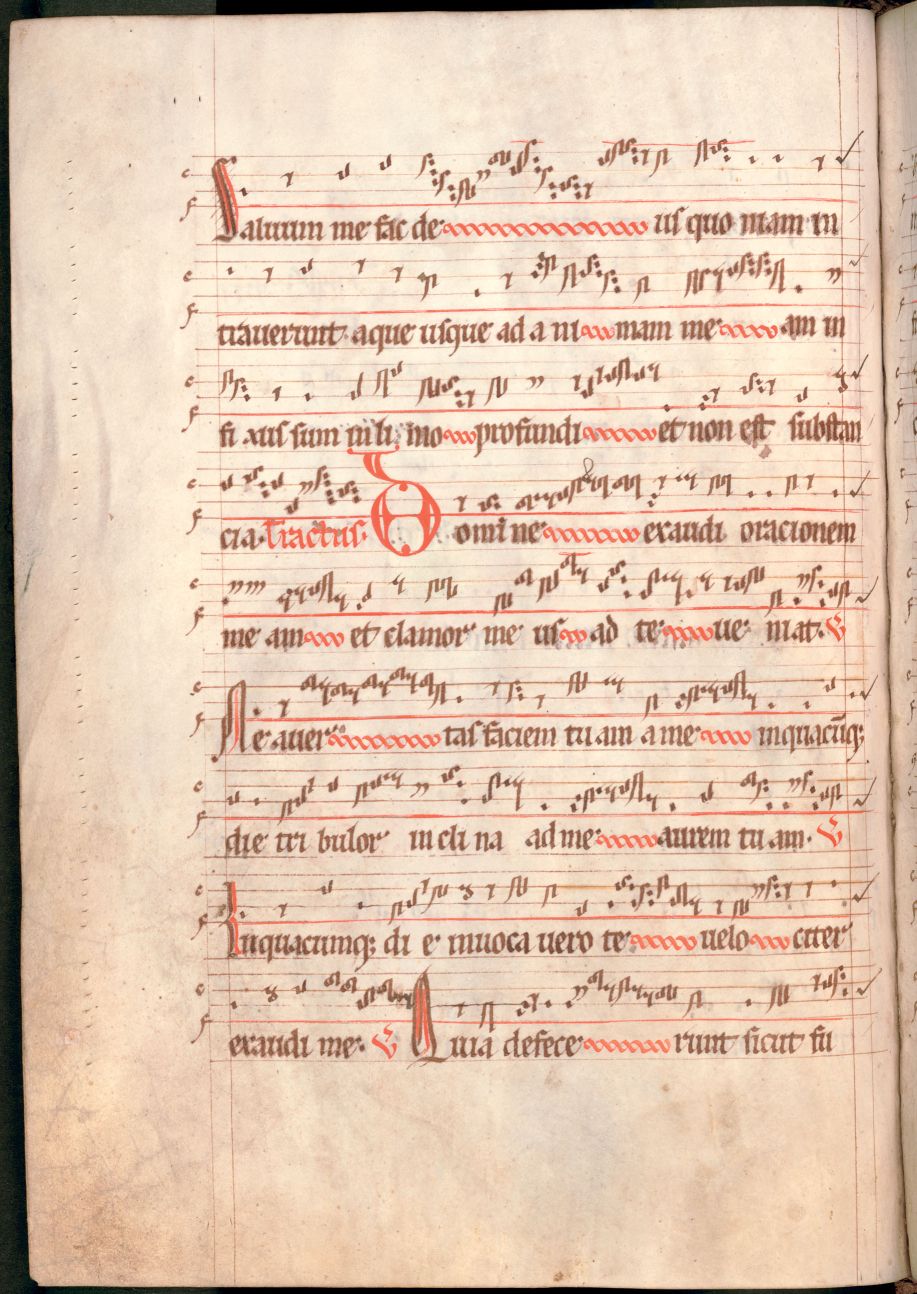 Saluum me fac de us quo niam in
trauerunt aque usque ad a ni mam me am in
fi xus sum in li mo profundi et non est substan
cia. Tractus. Domine exaudi oracionem
me am et clamor me us ad te ue niat. V
Ne auer tas faciem tu am a me inquacūq;
die tri bulor in cli na ad me aurem tu am. V
Inquacumq; di e inuoca uero te uelo citer
exaudi me. V Quia defece runt sicut fu